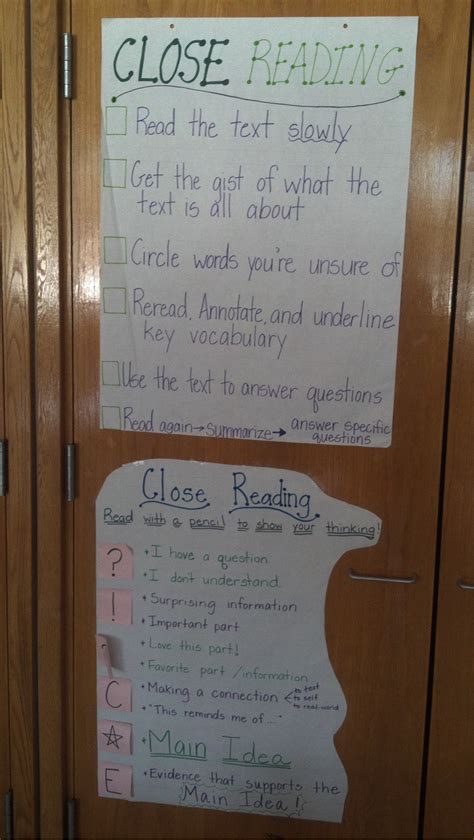 CLOSE READING
Read the text slowly
Get the gist of what the
text is all about
Circle words you're unsure of
Reread, Annotate, and underline
key vocabulary
Use the text to answer questions
Read again → Summarize → answer specific
questions
Close Reading
Read with a pencil to show your thinking!
? • I have a question
• I don't understand
! • Surprising information
• Important part
• Love this part!
• Favorite part / information
C • Making a connection to text
to self
to real-world
• "This reminds me of..."
☆ • Main Idea
E • Evidence that supports the
Main Idea!